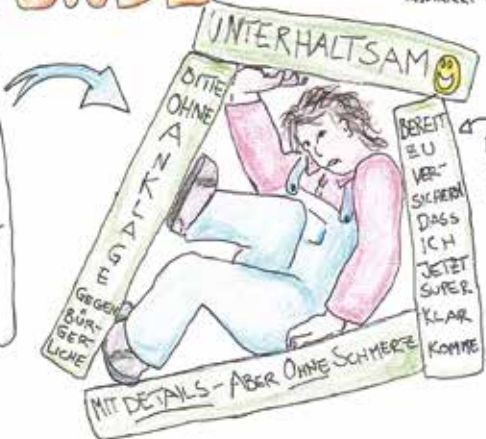 UNTERHALTSAM
BITTE
OHNE
A
N
K
L
A
G
E
GEGEN
BÜR-
GER-
LICHE
BEREIT
ZU
VER-
SICHERN
DASS
ICH
JETZT
SUPER
KLAR
KOMME
MIT DETAILS - ABER OHNE SCHMERZ